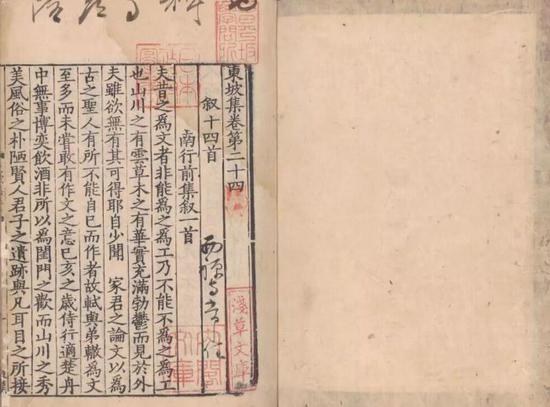 東坡集卷第二十四
叙十四首
南行前集叙一首
夫昔之為文者非能為之為工乃不能不為之為工
也山川之有雲草木之有華實充滿勃鬱而見於外
夫雖欲無有其可得耶自少聞 家君之論文以為
古之聖人有所不能自已而作者故軾與弟轍為文
至多而未嘗敢有作文之意已亥之歲侍行適楚舟
中無事博奕飲酒非所以為閨門之歡而山川之秀
美風俗之朴陋賢人君子之遺跡與凡耳目之所接
淺草文庫